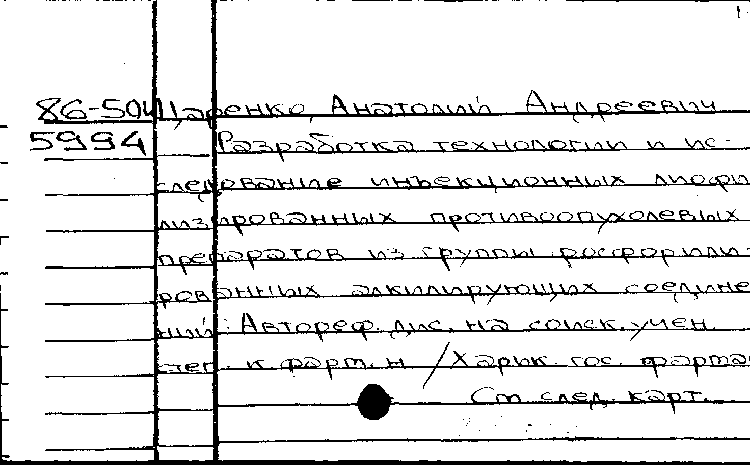 86-504 Царенко, Анатолий Андреевич
5994 Разработка технологии и ис-
следование инъекционных лиофи
лизированных противоопухолевых
препаратов из группы фосфорили-
рованных алкилирующих соедине
ний: Автореф. дис. на соиск. учен.
степ. к. фарм. н / Харьк. гос. фарма
См след. карт.